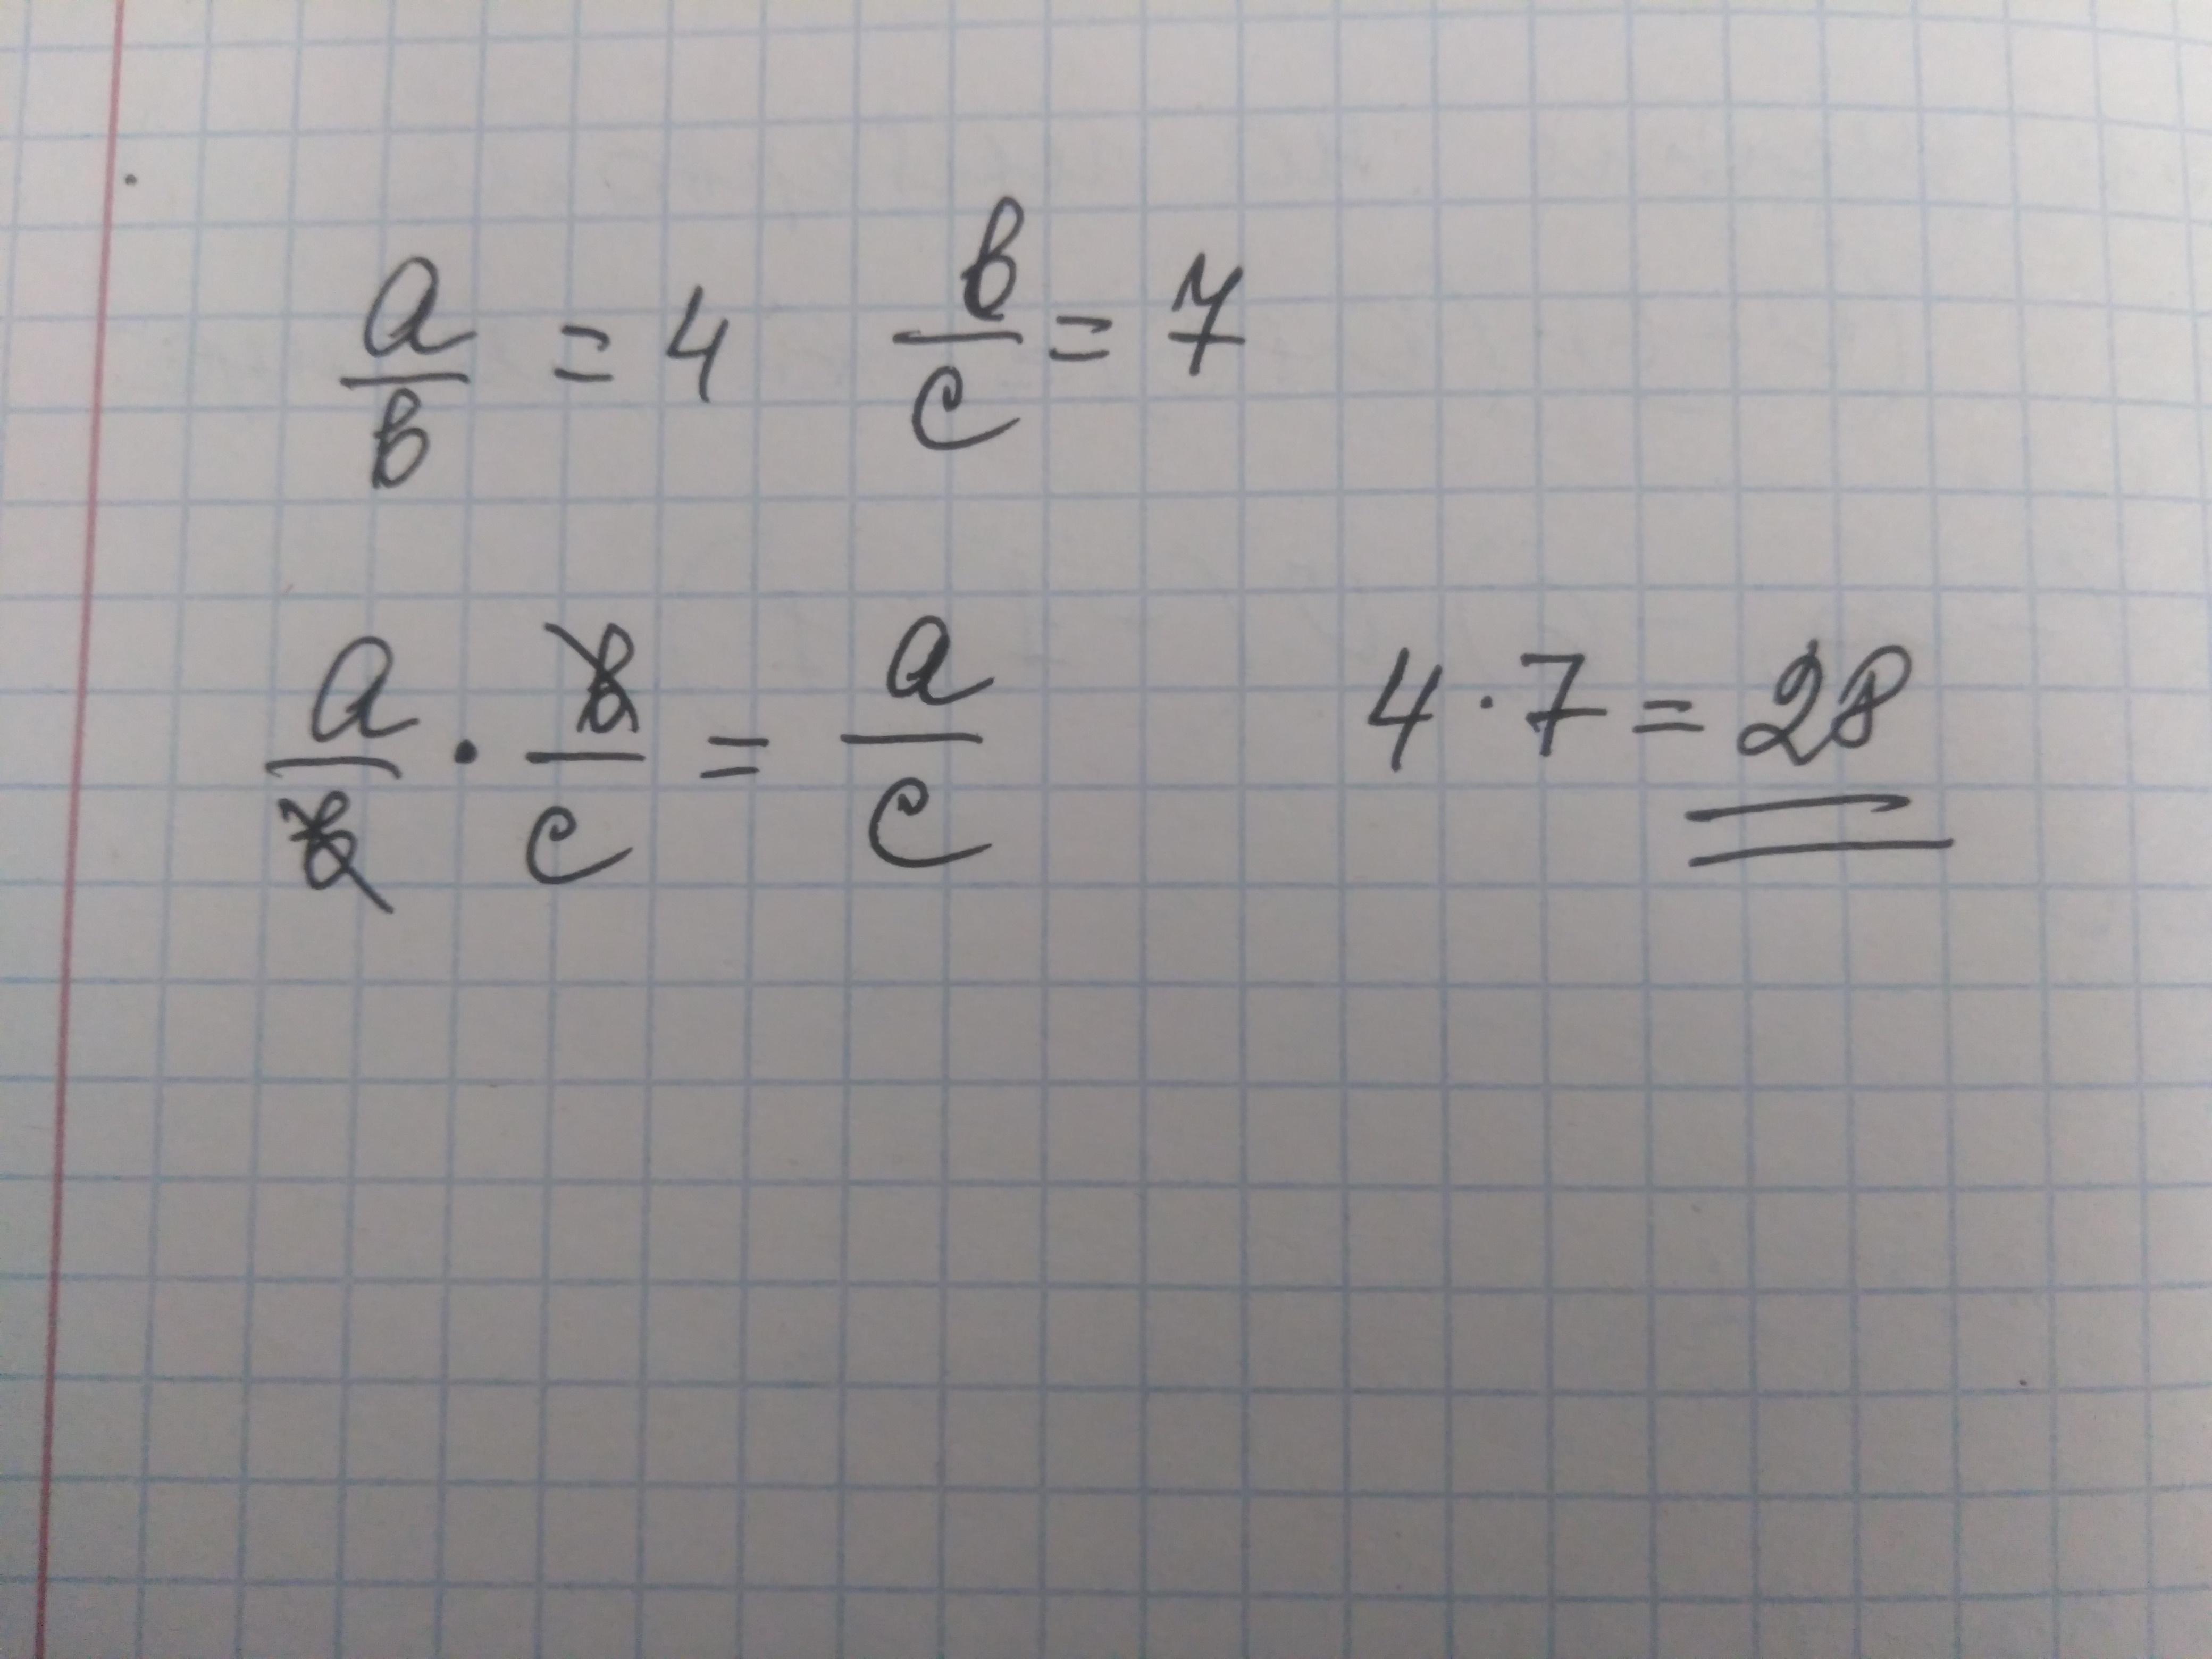 a/b = 4 b/c = 7
a/b · b/c = a/c 4 · 7 = 28